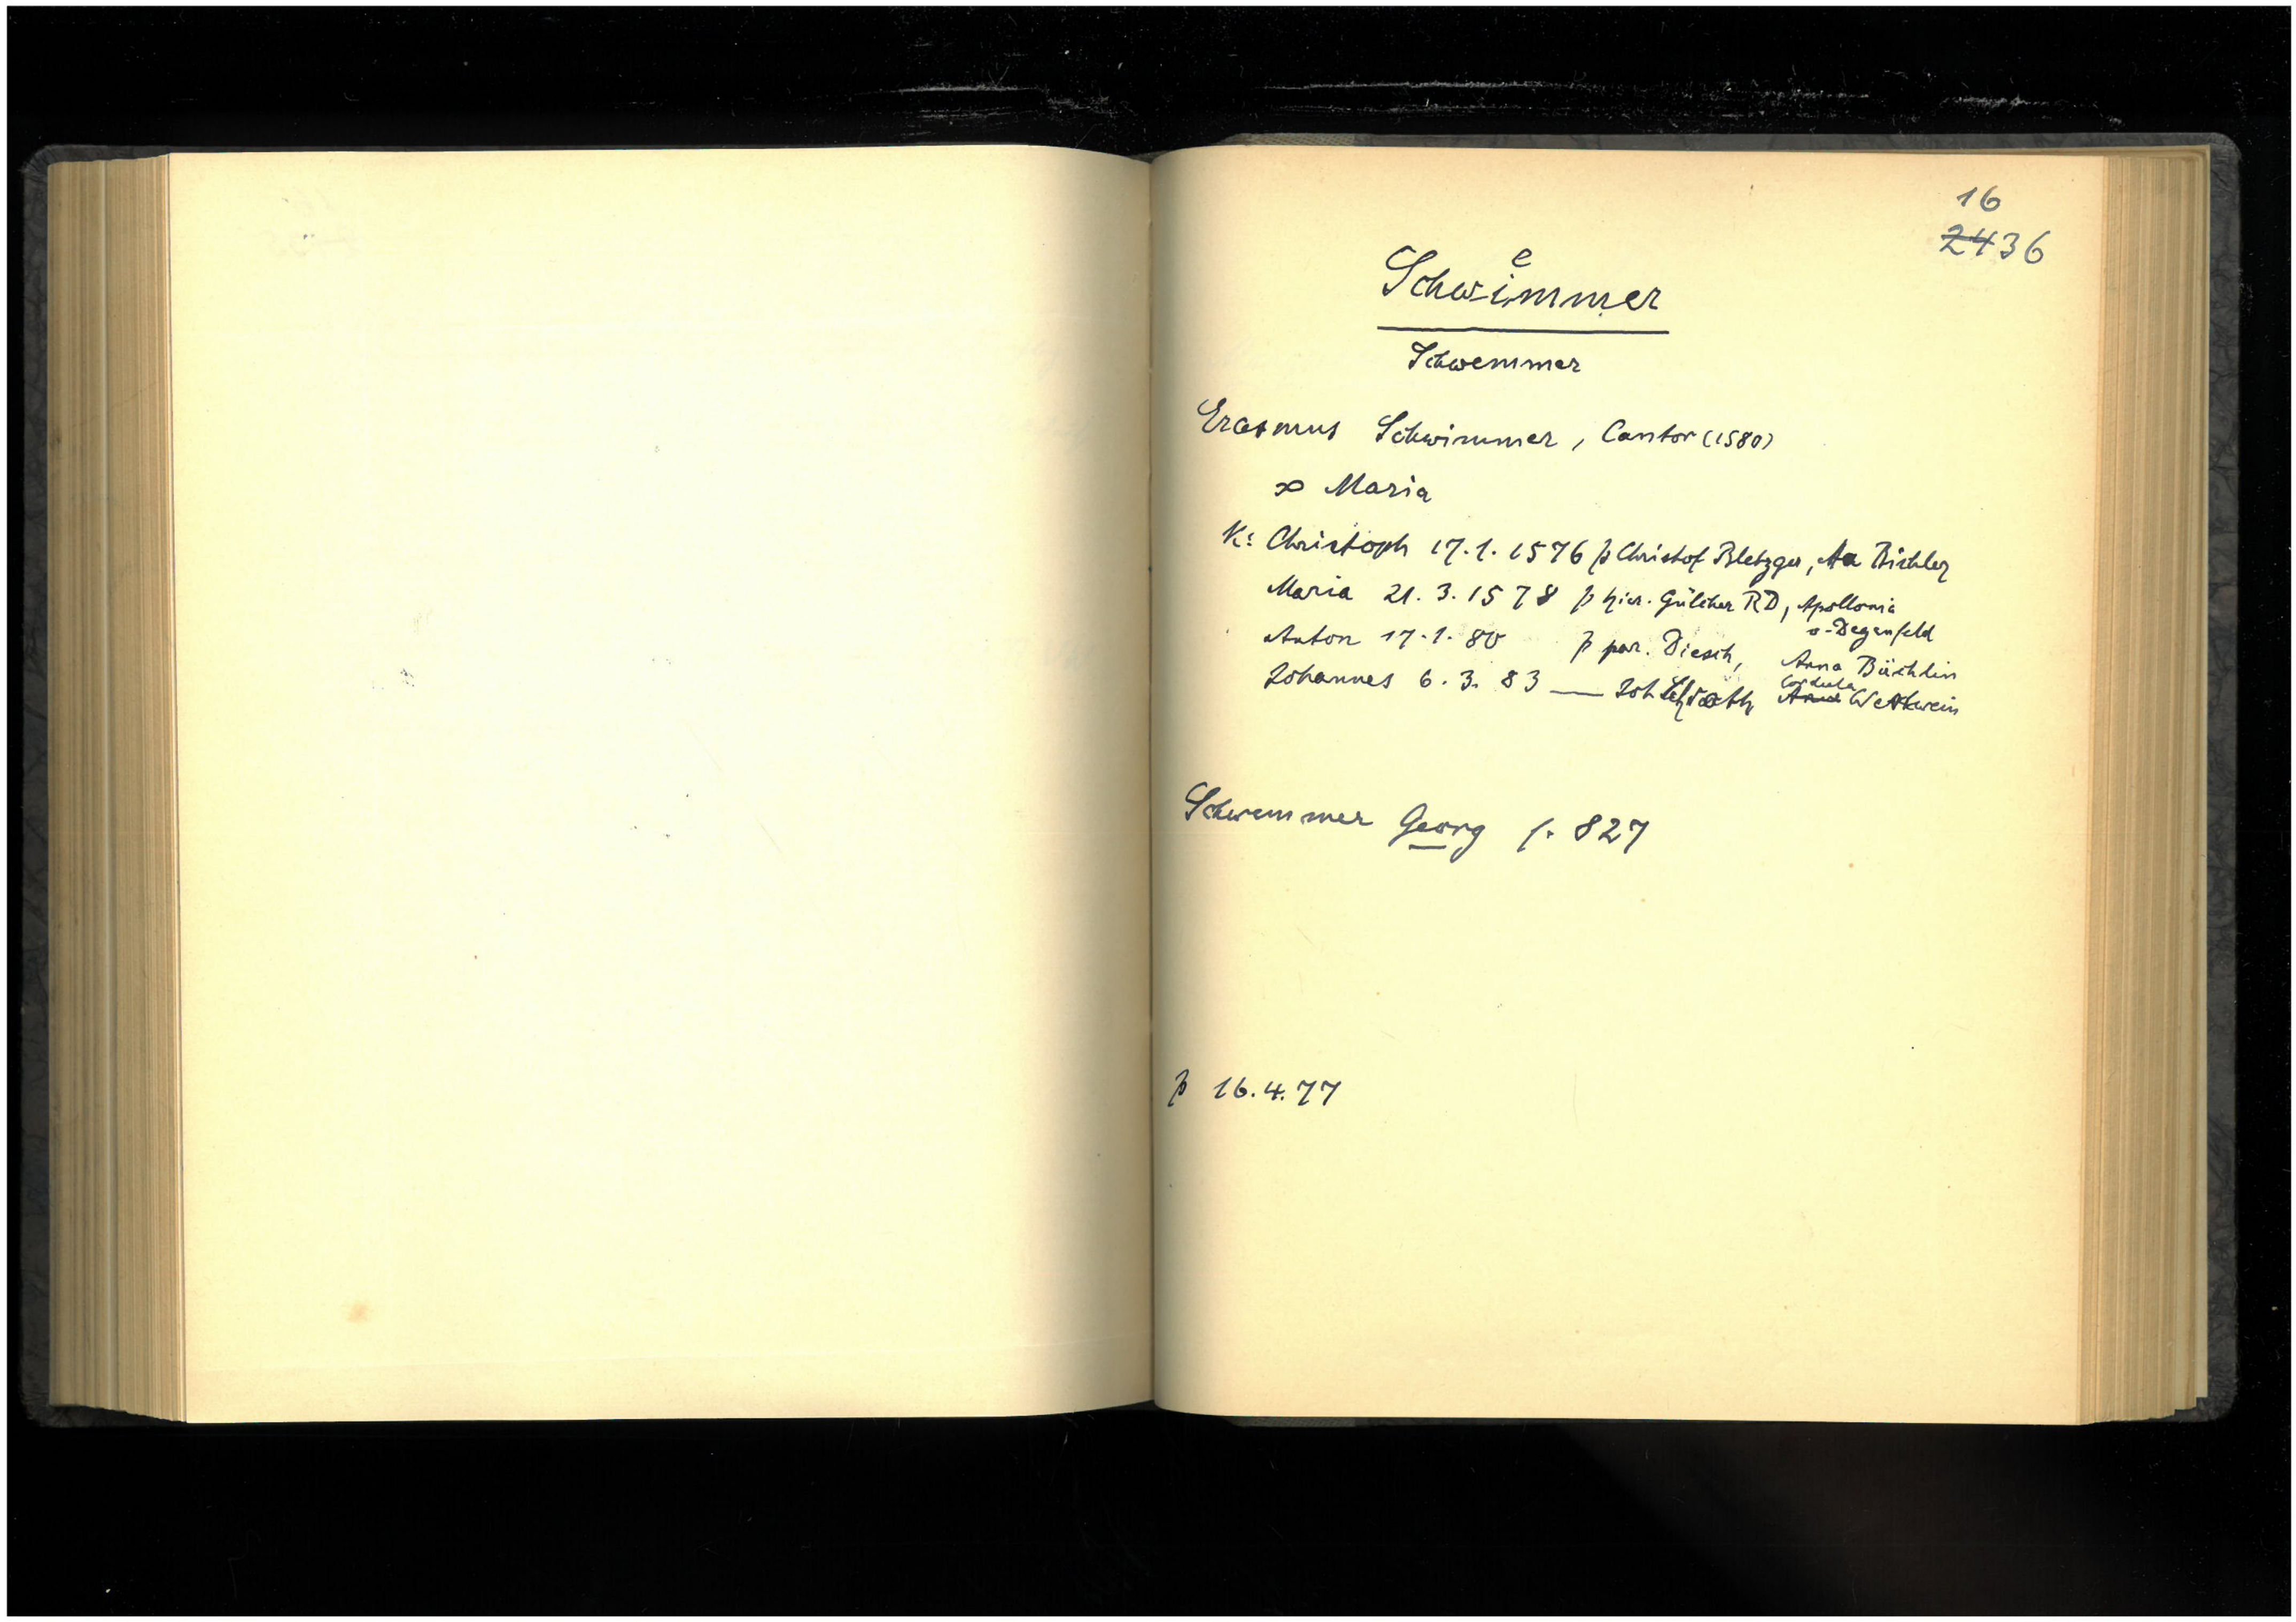 16
2436
e
Schwimmer
Schwemmer
Erasmus Schwimmer, Cantor (1580)
∞ Maria
K: Christoph 17.1.1576 p Christof Bletzger, Aa Bichler
Maria 21.3.1578 p Hier. Gülcher RD, Apollonia
v. Degenfeld
Anton 17.1.80 p par. Diesch, Anna Büchlin
Cordula
Johannes 6.3.83 — Joh Anna Werkwein
Schwemmer Georg f. 827
p 16.4.77